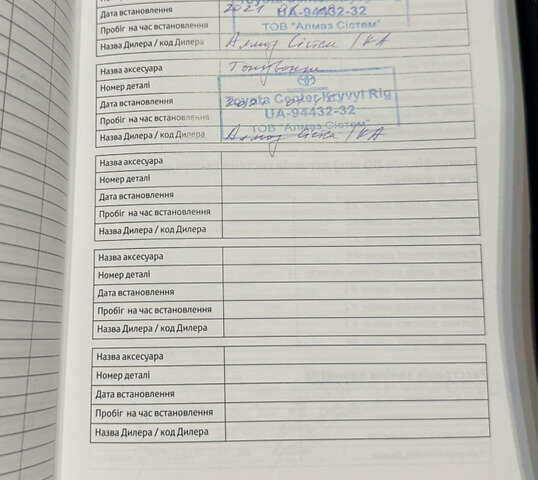 Дата встановлення 2021
UA-94432-32
Пробіг на час встановлення
ТОВ "Алмаз Сістем"
Назва Дилера / код Дилера Алмаз Сістем / КА
Назва аксесуара
Номер деталі
Toyota Center Kryvyi Rig
Дата встановлення
UA-94432-32
Пробіг на час встановлення
ТОВ "Алмаз Сістем"
Назва Дилера / код Дилера Алмаз Сістем / КА
Назва аксесуара
Номер деталі
Дата встановлення
Пробіг на час встановлення
Назва Дилера / код Дилера
Назва аксесуара
Номер деталі
Дата встановлення
Пробіг на час встановлення
Назва Дилера / код Дилера
Назва аксесуара
Номер деталі
Дата встановлення
Пробіг на час встановлення
Назва Дилера / код Дилера